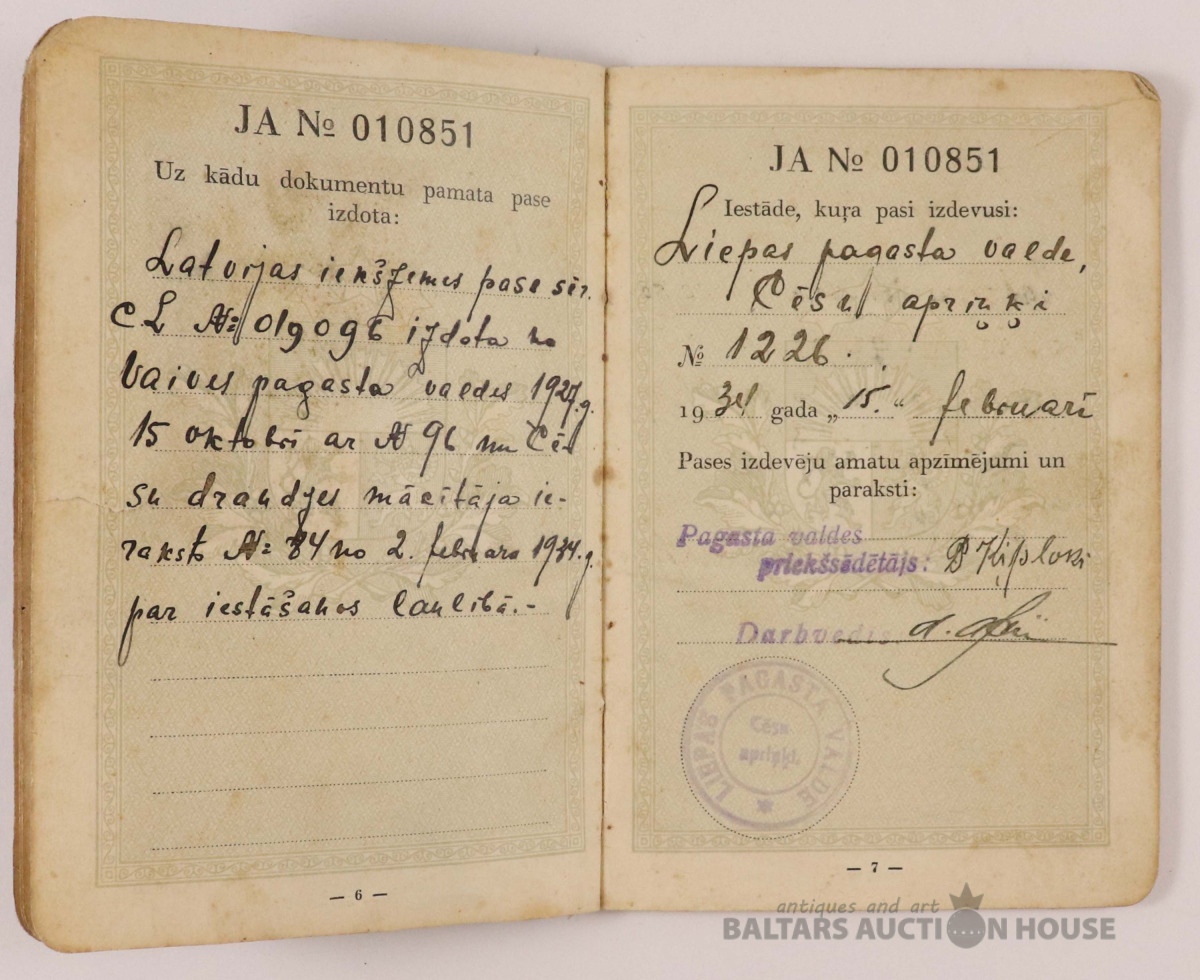 JA № 010851
Uz kādu dokumentu pamata pase
izdota:
Latvijas iekšzemes pase sēr.
CL № 019096 izdota no
Vaives pagasta valdes 1927.g.
15 oktobrī ar № 96 un Cē-
su draudzes mācītāja ie-
raksts № 84 no 2. februara 1934.g.
par iestāšanos laulībā.-
— 6 —
JA № 010851
Iestāde, kuŗa pasi izdevusi:
Liepas pagasta valde,
Cēsu apriņķī
№ 1226.
1934 gada „15.“ februarī
Pases izdevēju amatu apzīmējumi un
paraksti:
Pagasta valdes
priekšsēdētājs:
Darbvedis
LIEPAS PAGASTA VALDE
Cēsu
apriņķī.
— 7 —
antiques and art
BALTARS AUCTION HOUSE